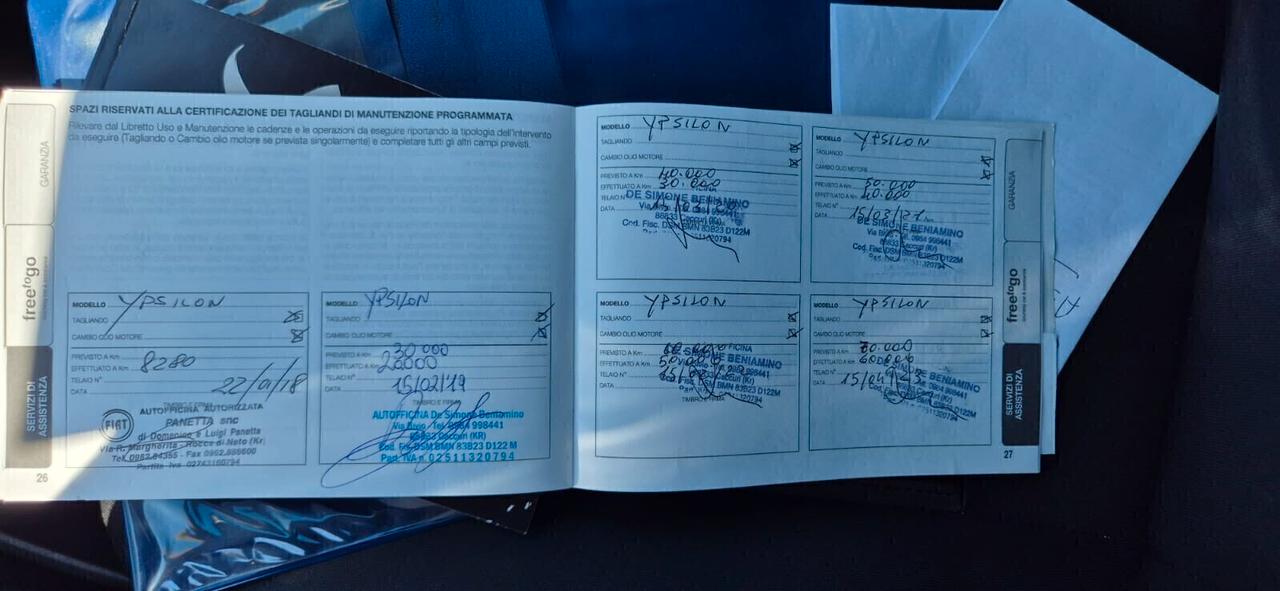 SPAZI RISERVATI ALLA CERTIFICAZIONE DEI TAGLIANDI DI MANUTENZIONE PROGRAMMATA
Rilevare dal Libretto Uso e Manutenzione le cadenze e le operazioni da eseguire riportando la tipologia dell'intervento
da eseguire (Tagliando o Cambio olio motore se prevista singolarmente) e completare tutti gli altri campi previsti.
GARANZIA
freetogo
SERVIZI DI
ASSISTENZA
MODELLO YPSILON
TAGLIANDO
CAMBIO OLIO MOTORE
PREVISTO A Km
EFFETTUATO A Km 8280
TELAIO N°
DATA 22/9/18
TIMBRO E FIRMA
FIAT
AUTOFFICINA AUTORIZZATA
PANETTA snc
di Domenico e Luigi Panetta
Via R. Margherita - Rocca di Neto (Kr)
Partita Iva 02743160794
26
MODELLO YPSILON
TAGLIANDO
CAMBIO OLIO MOTORE
PREVISTO A Km 30 000
EFFETTUATO A Km 20000
TELAIO N°
DATA 15/02/19
TIMBRO E FIRMA
AUTOFFICINA De Simone Beniamino
Via Bivio Tel. 0984 998441
88833 Caccuri (KR)
Cod. Fis. DSM BMN 83B23 D122 M
Part. IVA n. 02511320794
MODELLO YPSILON
TAGLIANDO
CAMBIO OLIO MOTORE
PREVISTO A Km 40.000
EFFETTUATO A Km 30.000
TELAIO N°
DATA
DE SIMONE BENIAMINO
88833 Caccuri (Kr)
Cod. Fisc. DSM BMN 83B23 D122M
MODELLO YPSILON
TAGLIANDO
CAMBIO OLIO MOTORE
PREVISTO A Km 50.000
EFFETTUATO A Km 40.000
TELAIO N°
DATA 15/03/21
DE SIMONE BENIAMINO
Via Bivio - Tel. 0984 998441
88833 Caccuri (Kr)
Cod. Fisc. DSM BMN 83B23 D122M
MODELLO YPSILON
TAGLIANDO
CAMBIO OLIO MOTORE
PREVISTO A Km 60.000
EFFETTUATO A Km
TELAIO N°
DATA
DE SIMONE BENIAMINO
TIMBRO E FIRMA
MODELLO YPSILON
TAGLIANDO
CAMBIO OLIO MOTORE
PREVISTO A Km
EFFETTUATO A Km
TELAIO N°
DATA
GARANZIA
freetogo
SERVIZI DI
ASSISTENZA
27